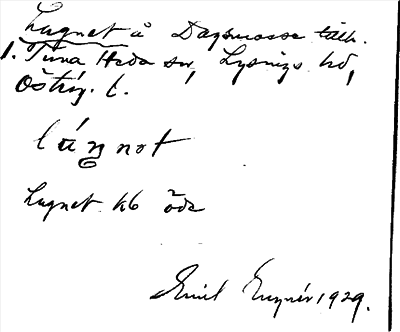 Lugnet å Dagsmosse täll.
1. Tina Heda sn, Lysings hd,
Östrg. l.
lúŋnot
Lugnet kb öde
Emil 1929.